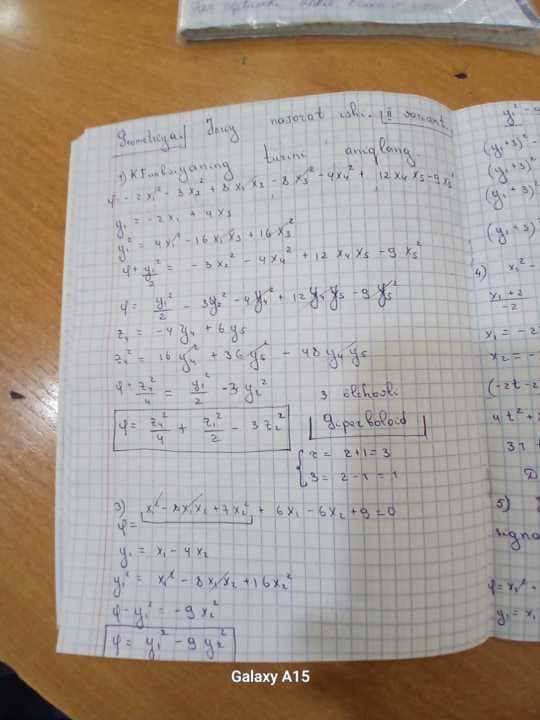 Geometriya. Joriy nazorat ishi. II variant.
1) K.Funksiyaning turini aniqlang.
φ = -2x₁² - 3x₂² + 8x₁x₃ - 8x₃² - 4x₄² + 12x₄x₅ - 9x₅²
y₁ = -2x₁ + 4x₃
y₁² = 4x₁² - 16x₁x₃ + 16x₃²
φ + y₁²/2 = -3x₂² - 4x₄² + 12x₄x₅ - 9x₅²
φ = y₁²/2 - 3y₂² - 4y₄² + 12y₄y₅ - 9y₅²
z₄ = -4y₄ + 6y₅
z₄² = 16y₄² + 36y₅² - 48y₄y₅
φ + z₄²/4 = y₁²/2 - 3y₂²
3 o'lchovli
φ = z₄²/4 + z₁²/2 - 3z₂²
Giperboloid
{ r = 2+1=3
S = 2-1 = 1
3) φ = x₁² - 8x₁x₂ + 7x₂² + 6x₁ - 6x₂ + 9 = 0
y₁ = x₁ - 4x₂
y₁² = x₁² - 8x₁x₂ + 16x₂²
φ - y₁² = -9x₂²
φ = y₁² - 9y₂²
(y₁+3)²
(y₁+3)²
(y₁+3)²
(y₁+3)
4) x₁² -
x₁+2
-2
x₁ = -2
x₂ = -
(-2t-2
4t² +
5)
signa
φ = x₁²
y₁ = x₁
Galaxy A15